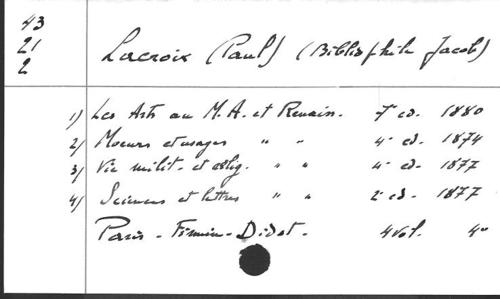 43
21
2
Lacroix (Paul) (Bibliophile Jacob)
1) Les Arts au M. A. et Renais. 7e ed. 1880
2) Moeurs et usages " " 4e ed. 1874
3) Vie milit. et relig. " " 4e ed. 1877
4) Sciences et lettres " " 2e ed. 1877
Paris - Firmin - Didot. 4 vol. 4o